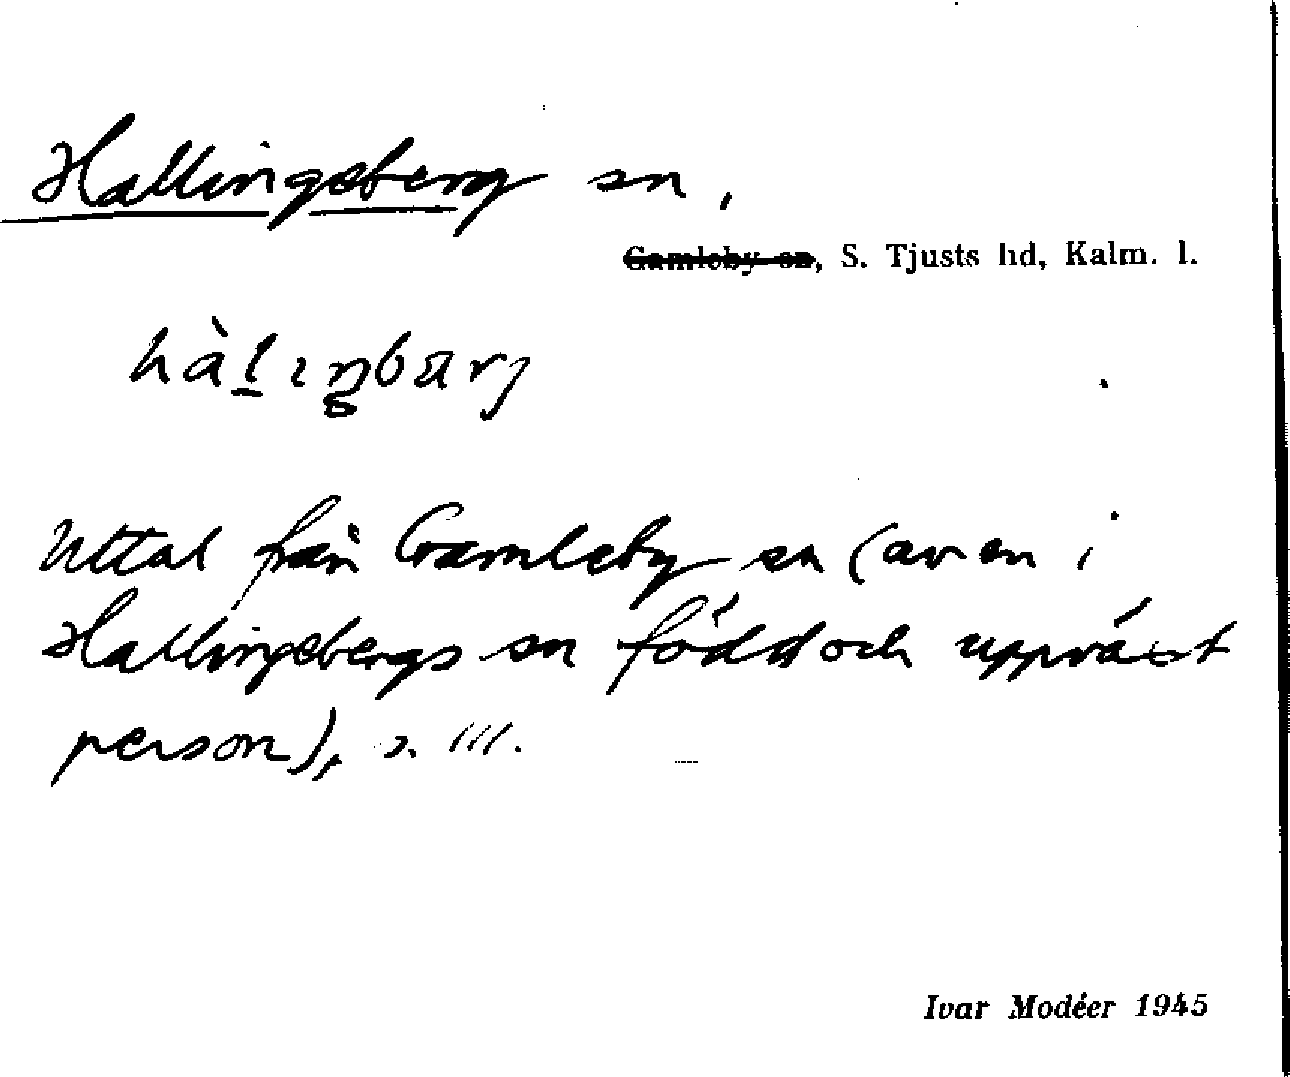 Hallingeberg sn,
Gamleby sn, S. Tjusts hd, Kalm. l.
hàlıŋbärj
Uttal från Gamleby sn (av en i
Hallingebergs sn född och uppväxt
person), s. III.
Ivar Modéer 1945